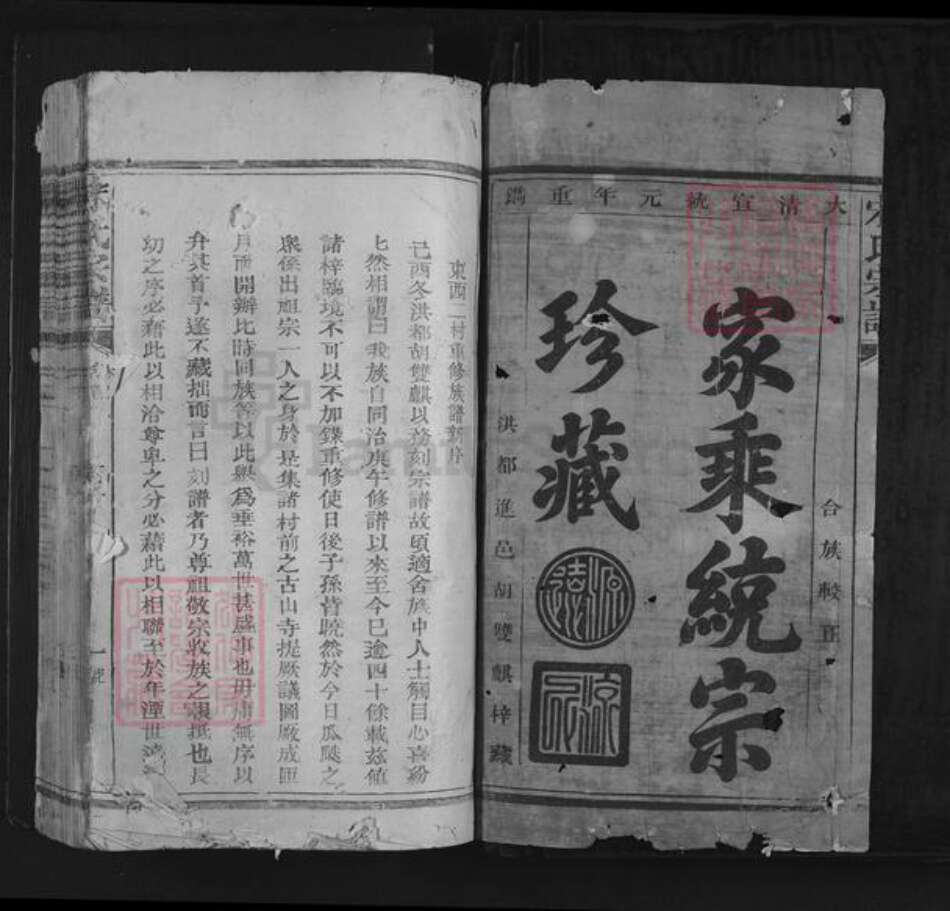 大清宣統元年重鐫
合族較正
家乘統宗
珍藏
洪都進邑胡雙麒梓藏
宋氏宗譜
東西二村重修族譜新序
己酉冬洪都胡雙麒以務刻宗譜故頃適舍族中人士觸目心喜紛
七然相謂曰我族自同治庚午修譜以來至今已逾四十餘載茲值
諸梓臨境不可以不加鏤重修使日後子孫皆曉然於今日瓜瓞之
衆係出祖宗一人之身於是集諸村前之古山寺提厥議圖厥成匝
月而開辦比時同族等以此舉爲垂裕萬世甚盛事也毋庸無序以
弁其首予遂不藏拙而言曰刻譜者乃尊祖敬宗收族之親撰也長
幼之序必藉此以相洽尊卑之分必藉此以相聯至於年湮世
宋氏宗譜